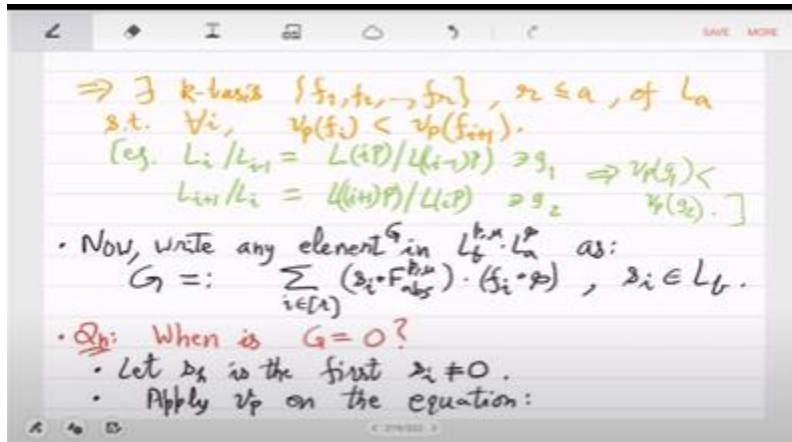 SAVE MORE
⇒ ∃ k-basis {f₁, f₂, .., fᵣ}, r ≤ a, of Lₐ
s.t. ∀i, vₚ(fᵢ) < vₚ(fᵢ₊₁).
[eg. Lᵢ/Lᵢ₋₁ = L(iP)/L((i-1)P) ∋ g₁ ⇒ vₚ(g₁) <
Lᵢ₊₁/Lᵢ = L((i+1)P)/L(iP) ∋ g₂ vₚ(g₂). ]
· Now, write any element G in L_b^{p,μ} · Lₐ^φ as:
G =: Σ_{i∈[r]} (sᵢ∘F_{abs}^{p,μ}) · (fᵢ∘φ), sᵢ ∈ L_b.
· Qn: When is G = 0?
· Let s_h is the first sᵢ ≠ 0.
· Apply vₚ on the equation: